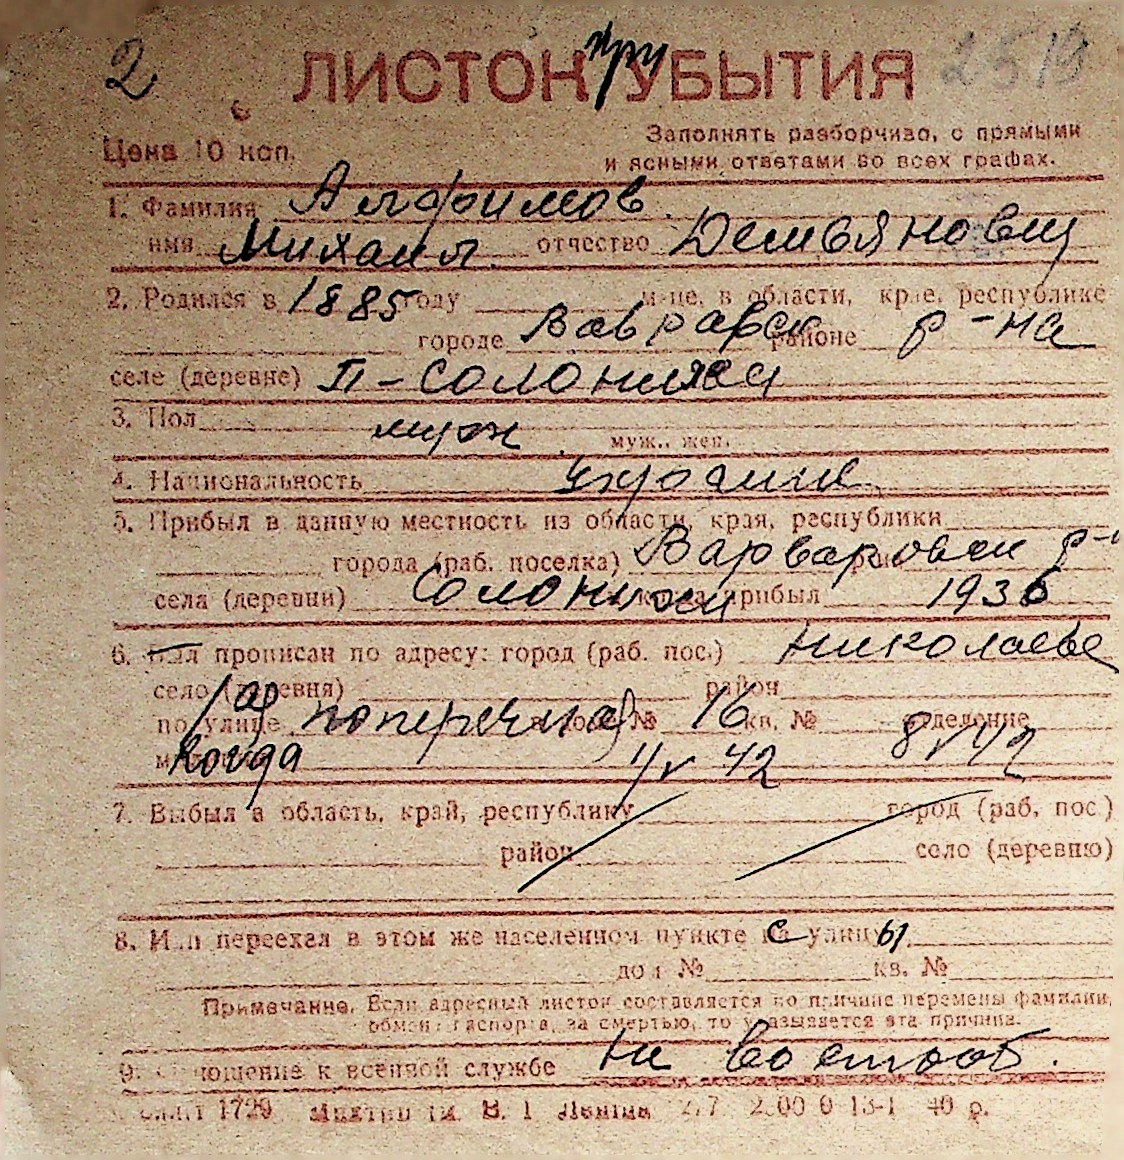 2 ЛИСТОК при УБЫТИЯ
Цена 10 коп. Заполнять разборчиво, с прямыми
и ясными ответами во всех графах.
1. Фамилия Алфимов
имя Михаил отчество Демьянович
2. Родился в 1885 году м-це, в области, крае, республике
городе районе р-на
селе (деревне) П-Солониха
3. Пол муж
муж., жен.
4. Национальность украине
5. Прибыл в данную местность из области, края, республики
города (раб. поселка) Варваровск р-н
села (деревни) Солонихи прибыл 1936
6. Был прописан по адресу: город (раб. пос.) Николаеве
село (деревня) район
по улице поперечная № 16 кв. № отделение
когда 42 8 V 42
7. Выбыл в область, край, республику город (раб. пос.)
район село (деревню)
8. Или переехал в этом же населенном пункте с улицы
дом № кв. №
Примечание. Если адресный листок составляется по причине перемены фамилии,
обмена паспорта, за смертью, то указывается эта причина.
9. Отношение к военной службе не военнооб.
1729 В. І. Леніна